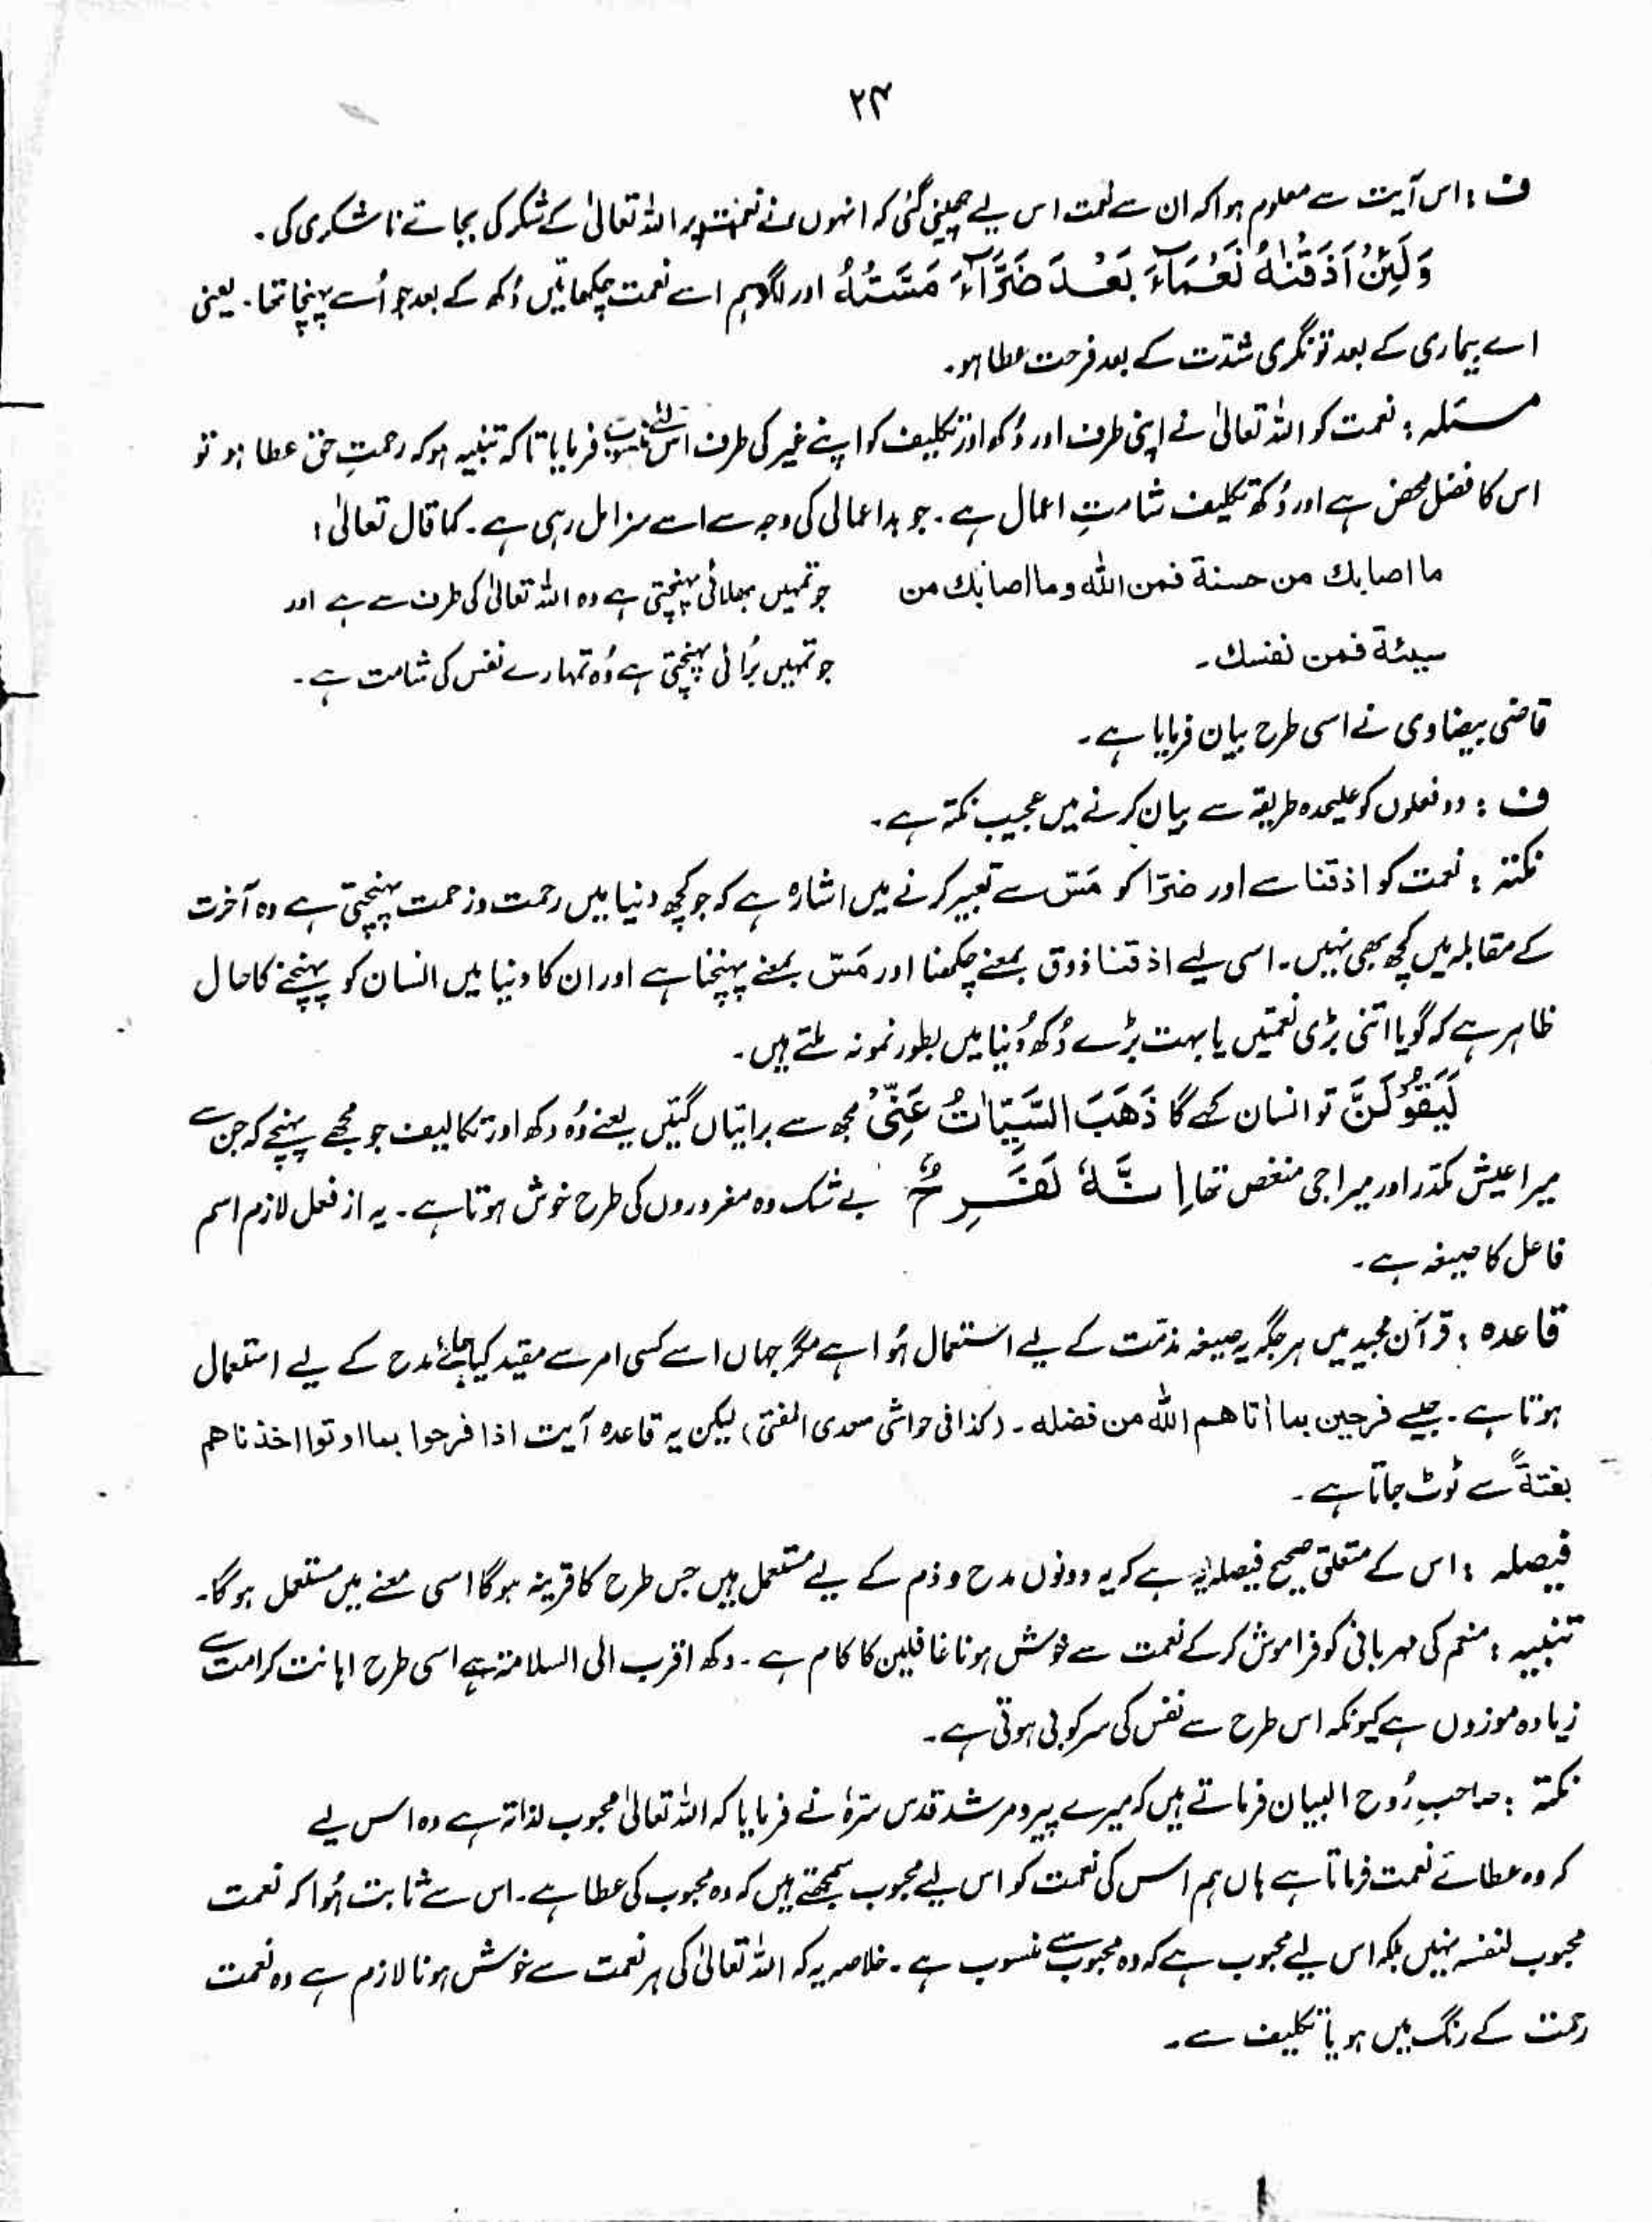 ۲۴
ف : اس آیت سے معلوم ہوا کہ ان سے نعمت اس لیے چھینی گئی کہ انہوں نے نعمت پر اللہ تعالیٰ کے شکر کی بجائے ناشکری کی ۔
وَلَئِنْ اَذَقْنٰهُ نَعْمَآءَ بَعْدَ ضَرَّآءَ مَسَّتْهُ اور اگر ہم اسے نعمت چکھائیں دُکھ کے بعد جو اُسے پہنچا تھا ۔ یعنی
اسے بیماری کے بعد تونگری شدّت کے بعد فرحت عطا ہو ۔
مسئلہ : نعمت کو اللہ تعالیٰ نے اپنی طرف اور دُکھ اور تکلیف کو اپنے غیر کی طرف اس لئے منسوب فرمایا تاکہ تنبیہ ہو کہ رحمتِ حق عطا ہو تو
اس کا فضل محض ہے اور دُکھ تکلیف شامتِ اعمال ہے ۔ جو بداعمالی کی وجہ سے اسے سزا مل رہی ہے ۔ کما قال تعالیٰ :
ما اصابك من حسنة فمن الله وما اصابك من جو تمہیں بھلائی پہنچتی ہے وہ اللہ تعالیٰ کی طرف سے ہے اور
سيئة فمن نفسك ۔ جو تمہیں بُرائی پہنچتی ہے وُہ تمہارے نفس کی شامت ہے ۔
قاضی بیضاوی نے اسی طرح بیان فرمایا ہے ۔
ف : دو فعلوں کو علیحدہ طریقہ سے بیان کرنے میں عجیب نکتہ ہے ۔
نکتہ : نعمت کو اذقنا سے اور ضرّا کو مَسّ سے تعبیر کرنے میں اشارہ ہے کہ جو کچھ دنیا میں رحمت و زحمت پہنچتی ہے وہ آخرت
کے مقابلہ میں کچھ بھی نہیں ۔ اسی لیے اذقنا ذوق بمعنے چکھنا اور مَسّ بمعنے پہنچنا ہے اور ان کا دنیا میں انسان کو پہنچنے کا حال
ظاہر ہے کہ گویا اتنی بڑی نعمتیں یا بہت بڑے دُکھ دُنیا میں بطور نمونہ ملتے ہیں ۔
لَيَقُوْلَنَّ تو انسان کہے گا ذَهَبَ السَّيِّاٰتُ عَنِّىْ مجھ سے برائیاں گئیں یعنے وُہ دکھ اور تکالیف جو مجھے پہنچے کہ جن سے
میرا عیش مکدّر اور میرا جی منغص تھا اِنَّهٗ لَفَرِحٌ بے شک وہ مغروروں کی طرح خوش ہوتا ہے ۔ یہ از فعل لازم اسم
فاعل کا صیغہ ہے ۔
قاعدہ : قرآن مجید میں ہر جگہ یہ صیغہ مذمّت کے لیے استعمال ہُوا ہے مگر جہاں اسے کسی امر سے مقید کیا جائے مدح کے لیے استعمال
ہوتا ہے ۔ جیسے فرحين بما أتاهم الله من فضله ۔ (کذا فی حواشی سعدی المفتی) لیکن یہ قاعدہ آیت اذا فرحوا بما اوتوا اخذناهم
بغتةً سے ٹوٹ جاتا ہے ۔
فیصلہ : اس کے متعلق صحیح فیصلہ یہ ہے کہ یہ دونوں مدح و ذم کے لیے مستعمل ہیں جس طرح کا قرینہ ہوگا اسی معنے میں مستعمل ہوگا ۔
تنبیہ : منعم کی مہربانی کو فراموش کر کے نعمت سے خوش ہونا غافلین کا کام ہے ۔ دکھ اقرب الی السلامۃ ہے اسی طرح اہانت کرامت سے
زیادہ موزوں ہے کیونکہ اس طرح سے نفس کی سرکوبی ہوتی ہے ۔
نکتہ : صاحبِ رُوح البیان فرماتے ہیں کہ میرے پیر و مرشد قدس سترہٗ نے فرمایا کہ اللہ تعالیٰ محبوب لذاتہ ہے وہ اس لیے
کہ وہ عطائے نعمت فرماتا ہے ہاں ہم اس کی نعمت کو اس لیے محبوب سمجھتے ہیں کہ وہ محبوب کی عطا ہے ۔ اس سے ثابت ہُوا کہ نعمت
محبوب لنفسہ نہیں بلکہ اس لیے محبوب ہے کہ وہ محبوب سے منسوب ہے ۔ خلاصہ یہ کہ اللہ تعالیٰ کی ہر نعمت سے خوش ہونا لازم ہے وہ نعمت
رحمت کے رنگ میں ہو یا تکلیف سے ۔